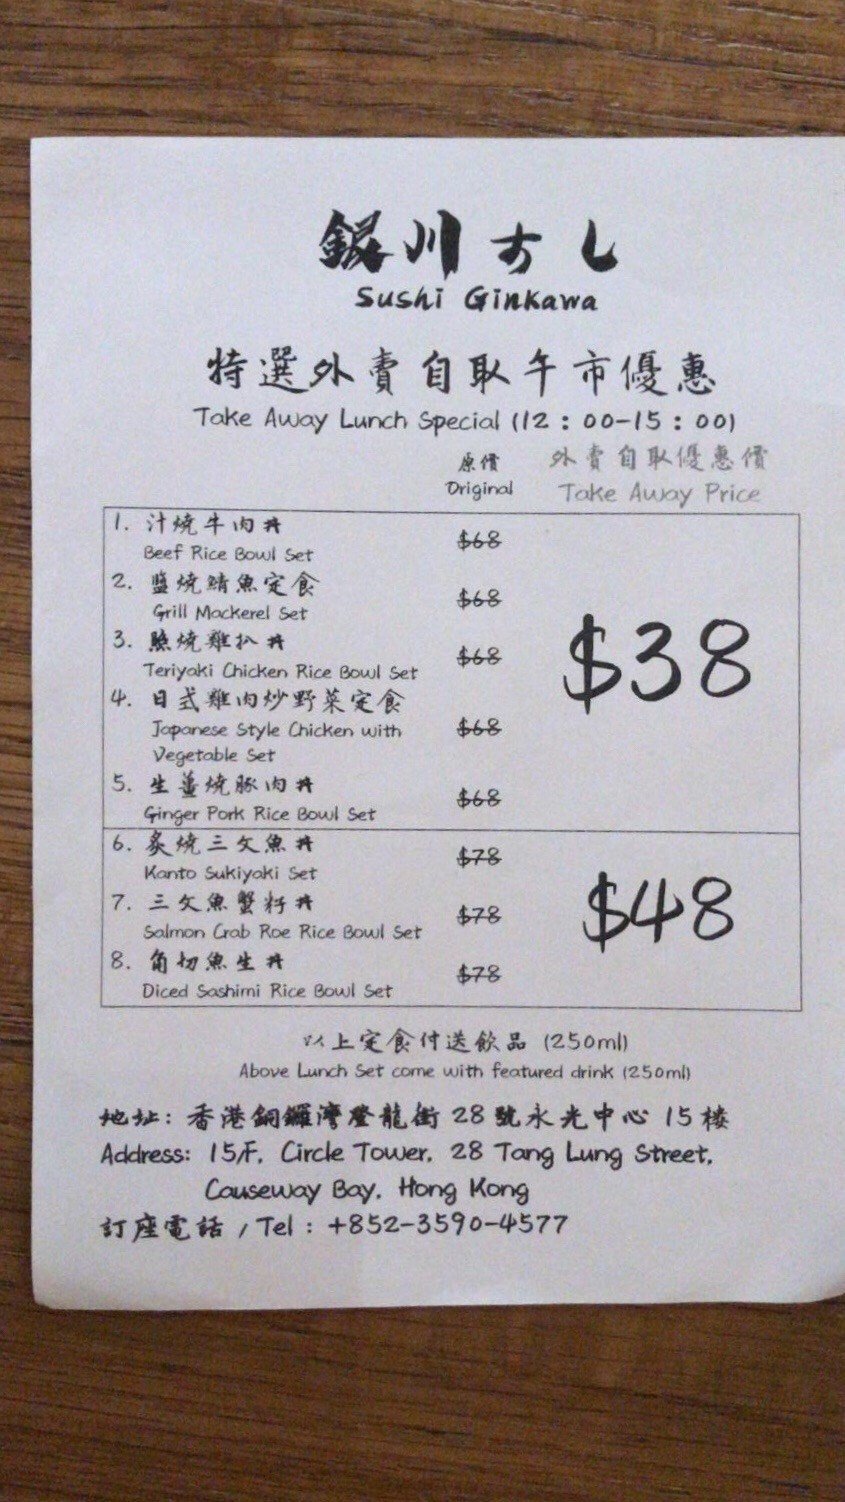 銀川すし
Sushi Ginkawa
特選外賣自取午市優惠
Take Away Lunch Special (12：00-15：00)
原價 外賣自取優惠價
Original Take Away Price
1. 汁燒牛肉丼 $68
Beef Rice Bowl Set
2. 鹽燒鯖魚定食 $68
Grill Mackerel Set
3. 照燒雞扒丼 $68 $38
Teriyaki Chicken Rice Bowl Set
4. 日式雞肉炒野菜定食
Japanese Style Chicken with $68
Vegetable Set
5. 生薑燒豚肉丼 $68
Ginger Pork Rice Bowl Set
6. 炙燒三文魚丼 $78
Kanto Sukiyaki Set
7. 三文魚蟹籽丼 $78 $48
Salmon Crab Roe Rice Bowl Set
8. 角切魚生丼 $78
Diced Sashimi Rice Bowl Set
以上定食付送飲品 (250ml)
Above Lunch Set come with featured drink (250ml)
地址: 香港銅鑼灣登龍街 28 號永光中心 15 樓
Address: 15/F, Circle Tower, 28 Tang Lung Street,
Causeway Bay, Hong Kong
訂座電話 / Tel : +852-3590-4577